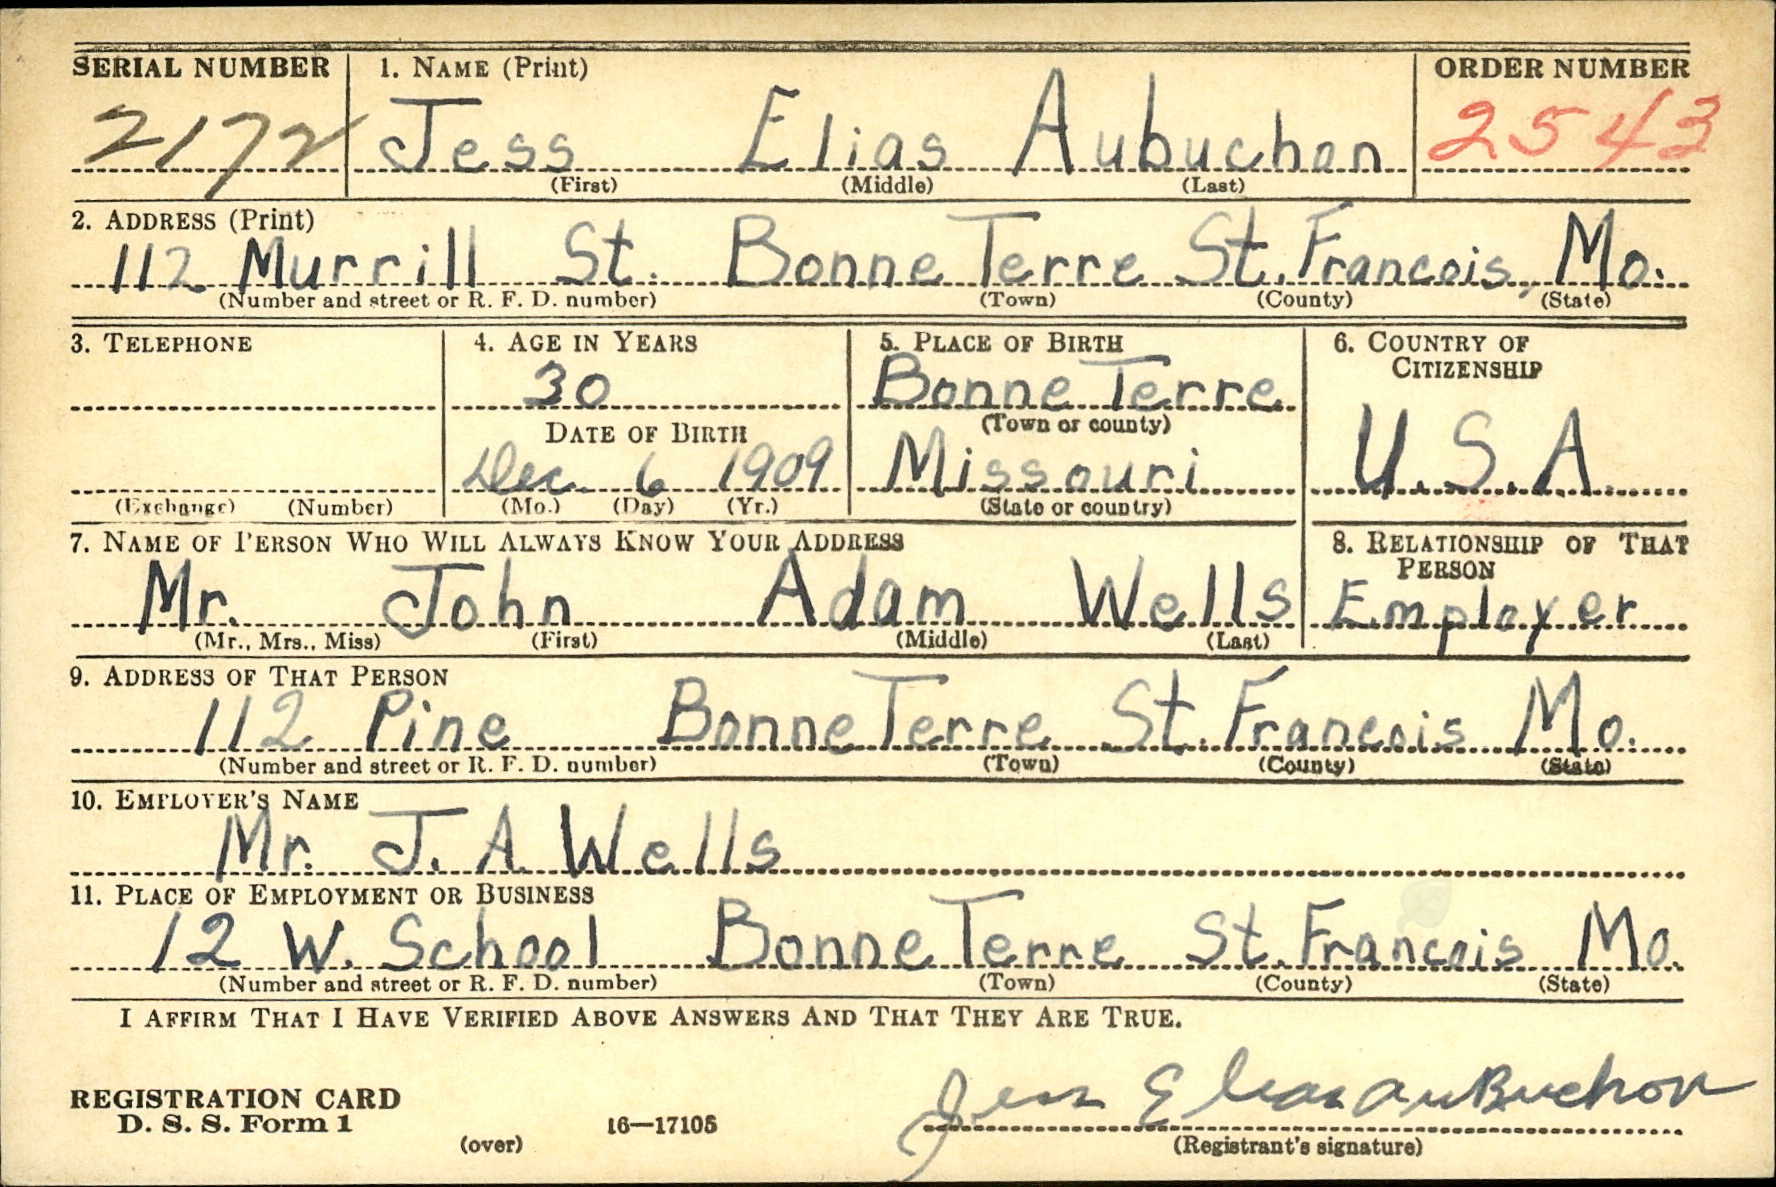 SERIAL NUMBER 1. NAME (Print) ORDER NUMBER
2172 Jess Elias Aubuchon 2543
(First) (Middle) (Last)
2. ADDRESS (Print)
112 Murrill St. Bonne Terre St. Francois, Mo.
(Number and street or R. F. D. number) (Town) (County) (State)
3. TELEPHONE 4. AGE IN YEARS 5. PLACE OF BIRTH 6. COUNTRY OF
CITIZENSHIP
30 Bonne Terre
(Town or county)
DATE OF BIRTH
Dec. 6 1909 Missouri U.S.A.
(Exchange) (Number) (Mo.) (Day) (Yr.) (State or country)
7. NAME OF PERSON WHO WILL ALWAYS KNOW YOUR ADDRESS 8. RELATIONSHIP OF THAT
PERSON
Mr. John Adam Wells Employer
(Mr., Mrs., Miss) (First) (Middle) (Last)
9. ADDRESS OF THAT PERSON
112 Pine Bonne Terre St. Francois Mo.
(Number and street or R. F. D. number) (Town) (County) (State)
10. EMPLOYER'S NAME
Mr. J. A. Wells
11. PLACE OF EMPLOYMENT OR BUSINESS
12 W. School Bonne Terre St. Francois Mo.
(Number and street or R. F. D. number) (Town) (County) (State)
I AFFIRM THAT I HAVE VERIFIED ABOVE ANSWERS AND THAT THEY ARE TRUE.
REGISTRATION CARD
D. S. S. Form 1 (over) 16—17105
Jess Elias AuBuchon
(Registrant's signature)